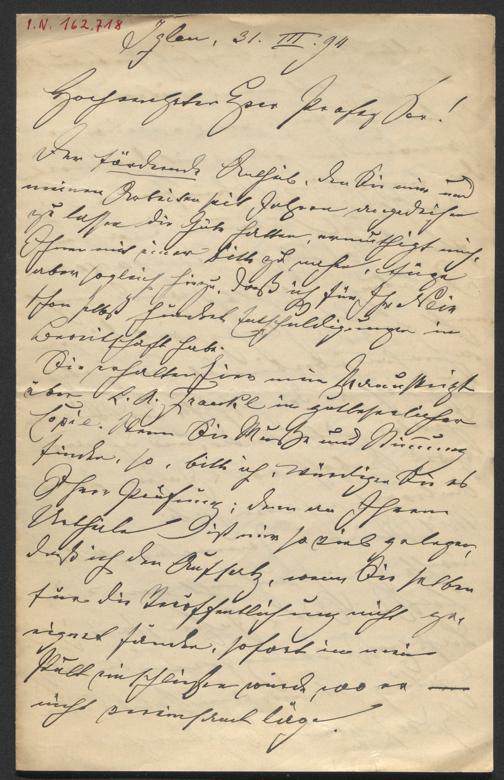 I.N. 162.718
Iglau, 31. III. 94
Hochverehrter Herr Professor!
Der fördernde Antheil, den Sie mir und
meinen Arbeiten seit Jahren angedeihen
zu lassen die Güte hatten, ermuthigt mich,
Ihnen mit einer Bitte zu nahen, füge
aber sogleich hinzu, daß ich für Ihr Nein
schon selbst hundert Entschuldigungen in
Bereitschaft habe.
Sie erhalten hier mein Manuskript
über L. A. Frankl in gutleserlicher
Copie. Wenn Sie Muße und Stimmung
finden, so, bitte ich, würdigen Sie es
Ihrer Prüfung; denn an Ihrem
Urtheile ist mir so viel gelegen,
daß ich den Aufsatz, wenn Sie selben
für die Veröffentlichung nicht ge-
eignet fänden, sofort in mein
Pult einschließen würde, wo er —
nicht vereinsamt läge.